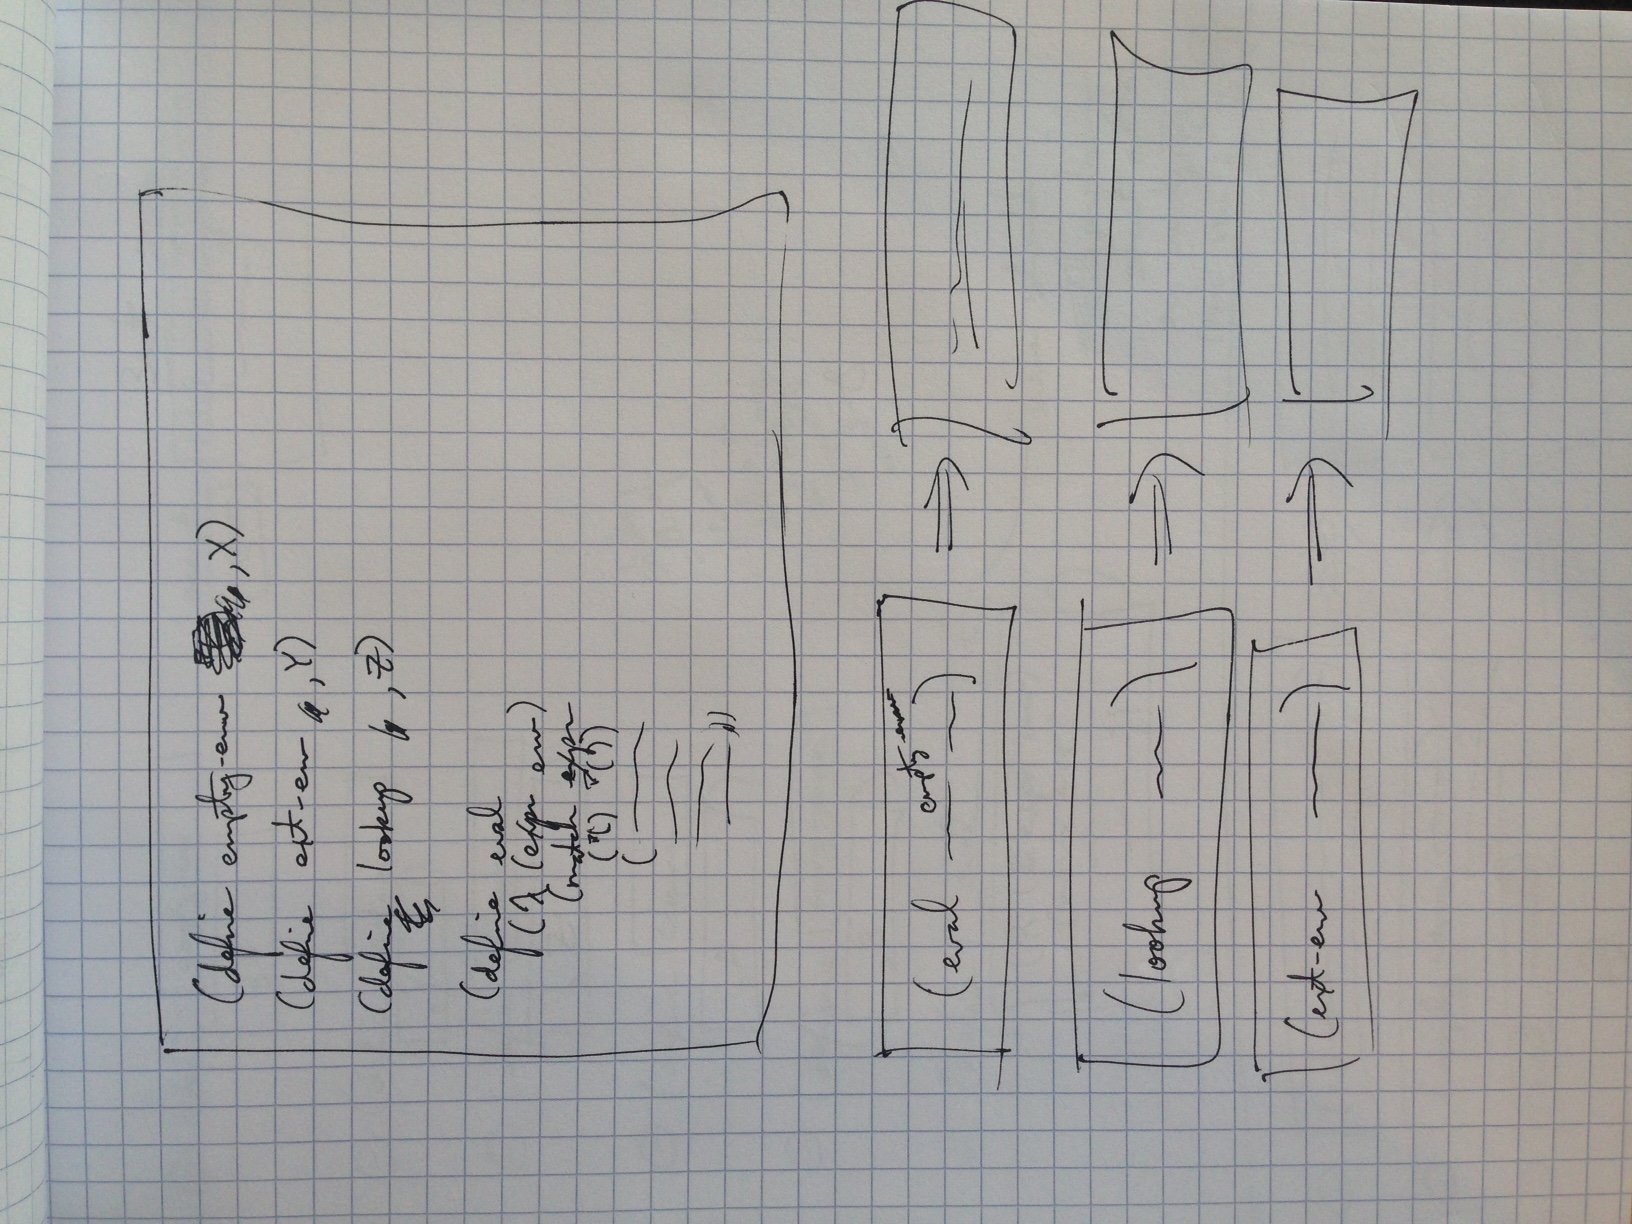 (define empty-env ,X)
(define ext-env ,Y)
(define lookup ,Z)
(define eval
(λ (expr env)
(match expr
(eval empty-env )
(lookup )
(ext-env )